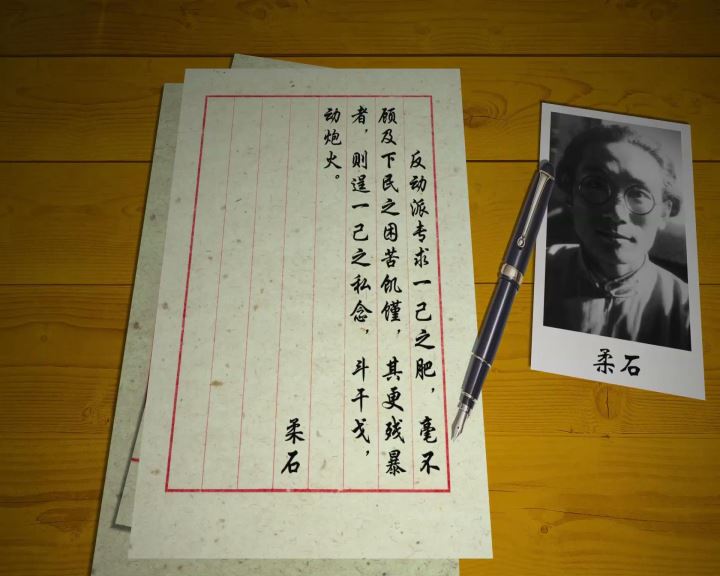 反动派专求一己之肥，毫不
顾及下民之困苦饥馑，其更残暴
者，则逞一己之私念，斗干戈，
动炮火。
柔石
柔石